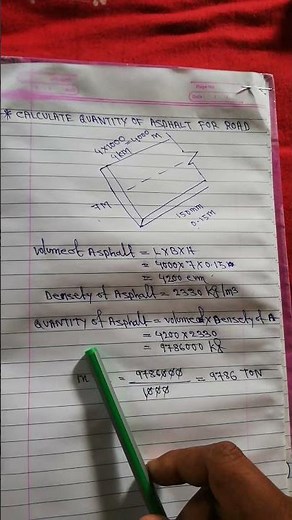 * CALCULATE QUANTITY OF ASPHALT FOR ROAD
4x1000
= 4000 m
4km
7M
150mm
0.15m
Volume of Asphalt = LXBXH
= 4000x7x0.15
= 4200 cm
Density of Asphalt = 2330 kg/m3
QUANTITY of Asphalt = volume x Density of A
= 4200x2330
= 9786000 kg
m = 9786000 / 1000 = 9786 TON